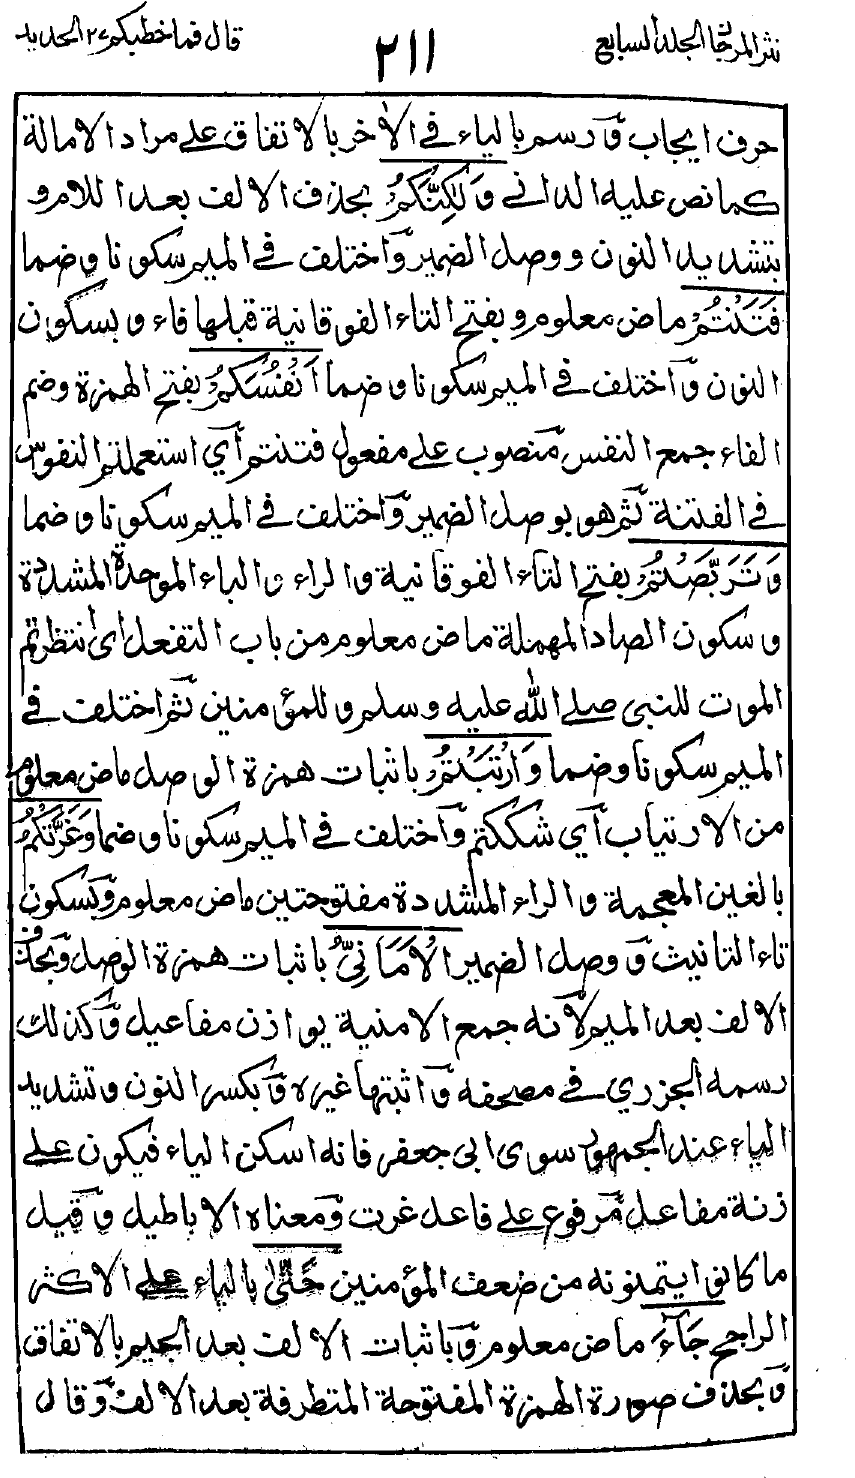 نثر المرجان الجلد السابع
٢١١
قال فما خطبكم ٢٧ الحديد
حرف ايجاب وَرسم بالياء في الاٰخر بالاتفاق على مراد الامالة
كما نص عليه الداني وَلٰكِنَّكُمْ بحذف الالف بعد اللام و
بتشديد النون و وصل الضمير وَاختلف في الميم سكونا وضما
فَتَنْتُمْ ماض معلوم وبفتح التاء الفوقانية قبلها فاء وبسكون
النون وَاختلف في الميم سكونا وضما اَنْفُسَكُمْ بفتح الهمزة وضم
الفاء جمع النفس مَنصوب على مفعول فتنتم آي استعملتم النفوس
في الفتنة ثَم هو بوصل الضمير وَاختلف في الميم سكونا وضما
وَتَرَبَّصْتُمْ بفتح التاء الفوقانية والراء والباء الموحدة المشددة
وسكون الصاد المهملة ماض معلوم من باب التفعل اي انتظرتم
الموت للنبي صلى الله عليه وسلم وللمؤمنين ثم اختلف في
الميم سكونا وضما وَارْتَبْتُمْ باثبات همزة الوصل ماض معلوم
من الارتياب آي شككتم وَاختلف في الميم سكونا وضما وَغَرَّتْكُمُ
بالغين المعجمة والراء المشددة مفتوحتين ماض معلوم وَبسكون
تاء التانيث وَوصل الضمير الْاَمَانِيُّ باثبات همزة الوصل وَبحذف
الالف بعد الميم لاَنه جمع الامنية يوازن مفاعيل وَكذلك
رسمه الجزري في مصحفه وَاثبتها غيره وَبكسر النون وتشديد
الياء عند الجمهور سوى ابي جعفر فانه اسكن الياء فيكون على
زنة مفاعل مَرفوع على فاعل غرت وَمعناه الاباطيل وَقيل
ما كانوا يتمنونه من ضعف المؤمنين حَتّٰى بالياء على الاكثر
الراجح جَآءَ ماض معلوم وَباثبات الالف بعد الجيم بالاتفاق
وَبحذف صورة الهمزة المفتوحة المتطرفة بعد الالف وَقال